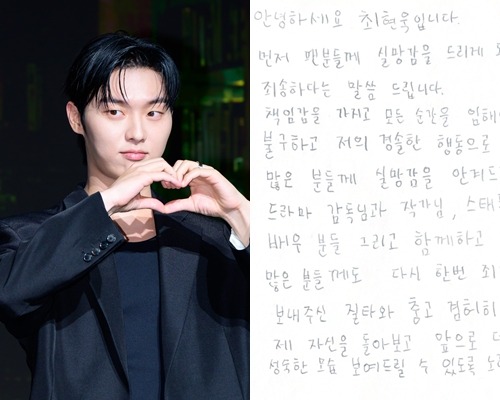 안녕하세요 최현욱입니다.
먼저 팬분들께 실망감을 드리게
죄송하다는 말씀 드립니다.
책임감을 가지고 모든 순간을 임해야
불구하고 저의 경솔한 행동으로
많은 분들께 실망감을 안겨드
드라마 감독님과 작가님, 스태
배우 분들 그리고 함께하고
많은 분들께도 다시 한번 죄
보내주신 질타와 충고 겸허히
제 자신을 돌아보고 앞으로
성숙한 모습 보여드릴 수 있도록 노